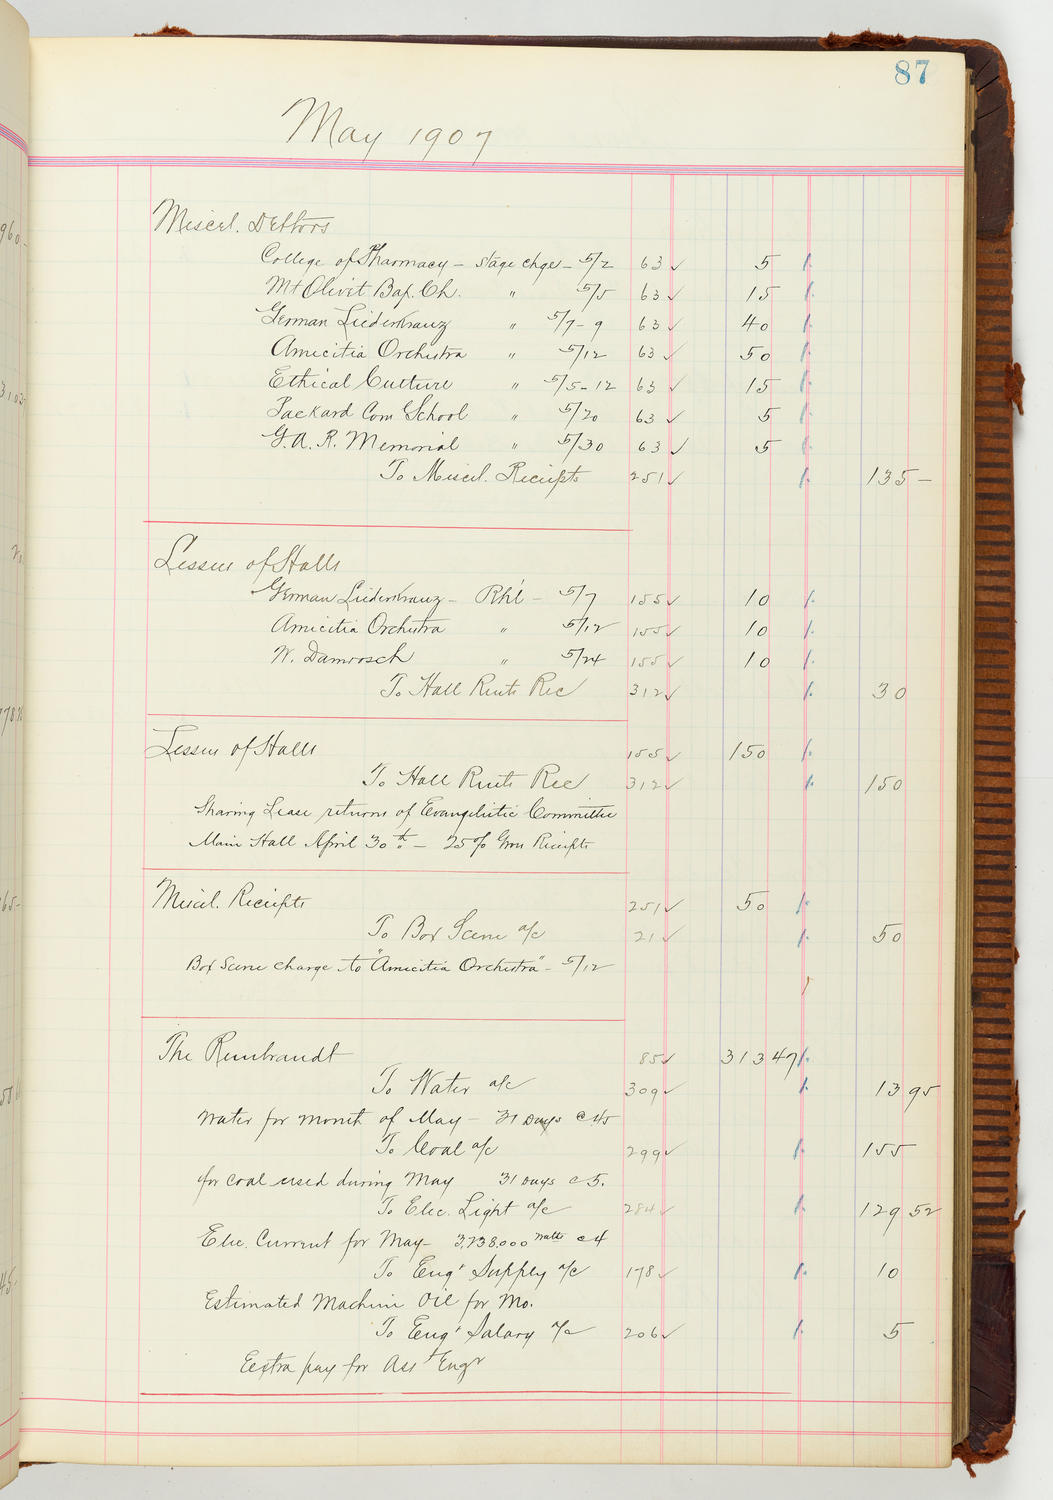 87
May 1907
Miscel. Debtors
College of Pharmacy - stage chge - 5/2 63 ✓ 5
Mt Olivit Bap. Ch. " 5/5 63 ✓ 15
German Liederkranz " 5/7-9 63 ✓ 40
Amicitia Orchestra " 5/12 63 ✓ 50
Ethical Culture " 5/5-12 63 ✓ 15
Packard Com School " 5/20 63 ✓ 5
G. A. R. Memorial " 5/30 63 ✓ 5
To Miscel. Receipts 251 ✓ 135 -
Lessees of Halls
German Liederkranz - Rhl - 5/7 155 ✓ 10
Amicitia Orchestra " 5/12 155 ✓ 10
W. Damrosch " 5/24 155 ✓ 10
To Hall Rents Rec 312 ✓ 30
Lessees of Halls 155 ✓ 150
To Hall Rents Rec 312 ✓ 150
Sharing Lease returns of Evangelistic Committee
Main Hall April 30th - 25% Gross Receipts
Miscel. Receipts 251 ✓ 50
To Box Scene a/c 21 ✓ 50
Box Scene charge to "Amicitia Orchestra" - 5/12
The Rembrandt 85 ✓ 313 47
To Water a/c 309 ✓ 13 95
Water for month of May - 31 Days @ 45
To Coal a/c 299 ✓ 155
for coal used during May 31 Days @ 5.
To Elec. Light a/c 284 ✓ 129 52
Elec. Current for May - 3,238,000 watts @ 4
To Eng' Supply a/c 178 ✓ 10
Estimated Machine Oil for Mo.
To Eng' Salary a/c 206 ✓ 5
Extra pay for Asst Engr